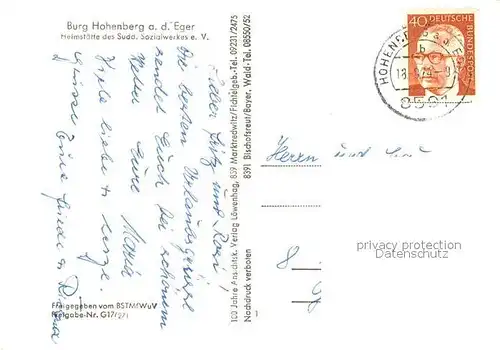 Burg Hohenberg a. d. Eger
Heimstätte des Sudd. Sozialwerkes e. V.
Lieber Fritz und Rosi!
Die besten Urlaubsgrüsse
sendet Euch bei schönem
Wetter Eure Maria
Viele liebe
Grüsse Eure
Freigegeben vom BSTMfWuV
Freigabe-Nr. G17/271
100 Jahre Ansichtsk. Verlag Löwenhag, 859 Marktredwitz/Fichtelgeb.-Tel. 09231/2475
Nachdruck verboten 8391 Bischofsreut/Bayer. Wald-Tel. 08550/52
1
40
DEUTSCHE BUNDESPOST
HOHENBERG a d EGER
b
8591
Herrn und Frau
8
privacy protection
Datenschutz